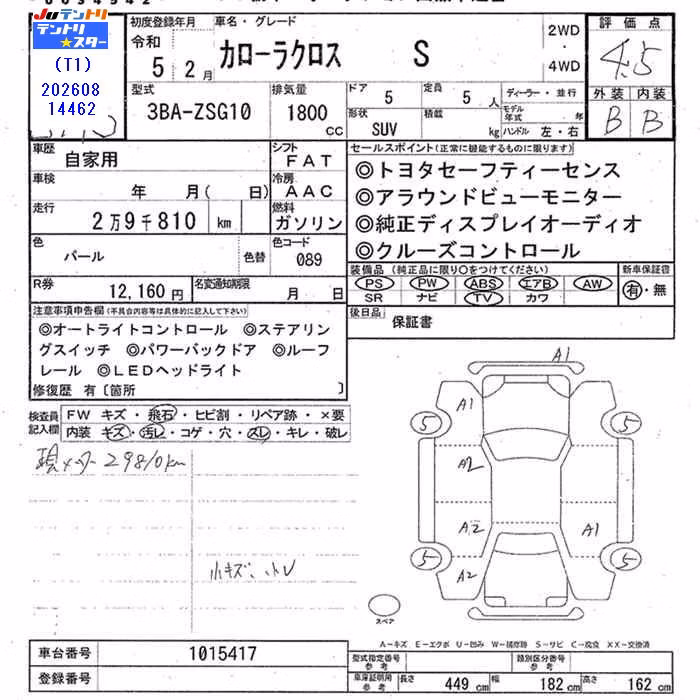 Juテントリ
テントリ★スター
(T1)
202608
14462
初度登録年月
令和
5 2月
車名・グレード
カローラクロス S
2WD
・
4WD
評価点
4.5
外装 内装
B B
型式
3BA-ZSG10
排気量
1800
CC
ドア
5
定員
5 人
形状
SUV
積載
kg
ディーラー・並行
モデル年式 年
ハンドル 左・右
車歴
自家用
シフト
FAT
車検
年 月( 日)
冷房
AAC
走行
2万9千810 km
燃料
ガソリン
色
パール
色替
色コード
089
R券
12,160円
名変通知期限
月 日
セールスポイント(正常に機能するものに限ります)
◎トヨタセーフティーセンス
◎アラウンドビューモニター
◎純正ディスプレイオーディオ
◎クルーズコントロール
装備品(純正品に限り○をつけてください)
PS PW ABS エアB AW
SR ナビ TV カワ
新車保証書
有・無
後日品
保証書
注意事項申告欄(不具合内容等は具体的に記入して下さい)
◎オートライトコントロール ◎ステアリン
グスイッチ ◎パワーバックドア ◎ルーフ
レール ◎LEDヘッドライト
修復歴 有〔箇所 〕
検査員記入欄
FW キズ・飛石・ヒビ割・リペア跡・×要
内装 キズ・汚レ・コゲ・穴・スレ・キレ・破レ
現メーター29810km
小キズ、小U
A1
A1
A2
A2
A2
A1
5
5
5
5
スペア
A-キズ E-エクボ U-凹み W-補修跡 S-サビ C-腐食 XX-交換済
車台番号
1015417
登録番号
型式指定番号
参考
類別区分番号
参考
車庫証明用
参考
長さ 449 cm
幅 182 cm
高さ 162 cm